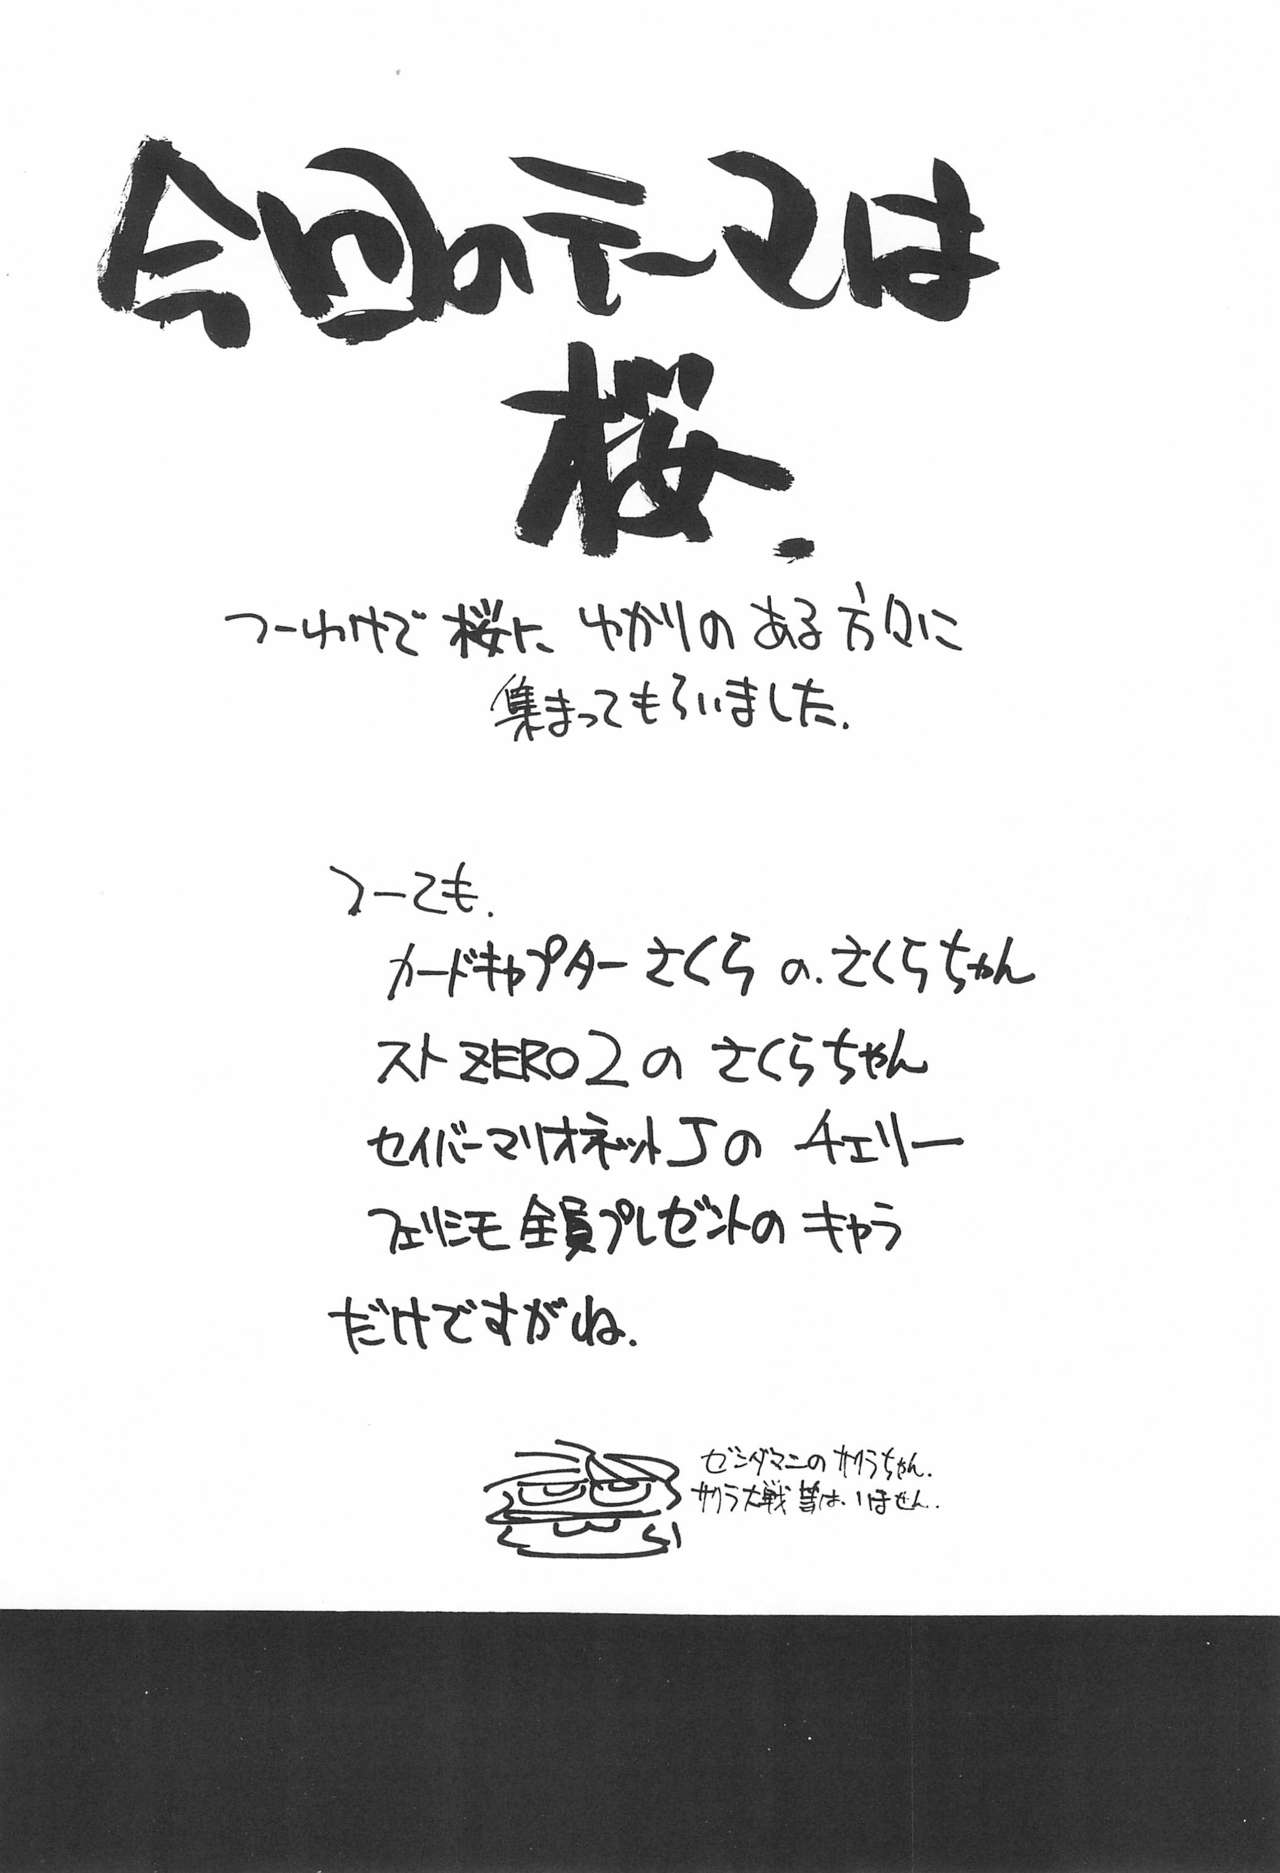 今回のテーマは
桜.
つーわけで桜に ゆかりの ある方々に
集まってもらいました.
つーても.
カードキャプターさくら の.さくらちゃん
ストZERO2の さくらちゃん
セイバーマリオネットJの チェリー
フェリシモ全員プレゼントの キャラ
だけですがね.
ゼンダマンの サクラちゃん.
サクラ大戦 等は.いません.